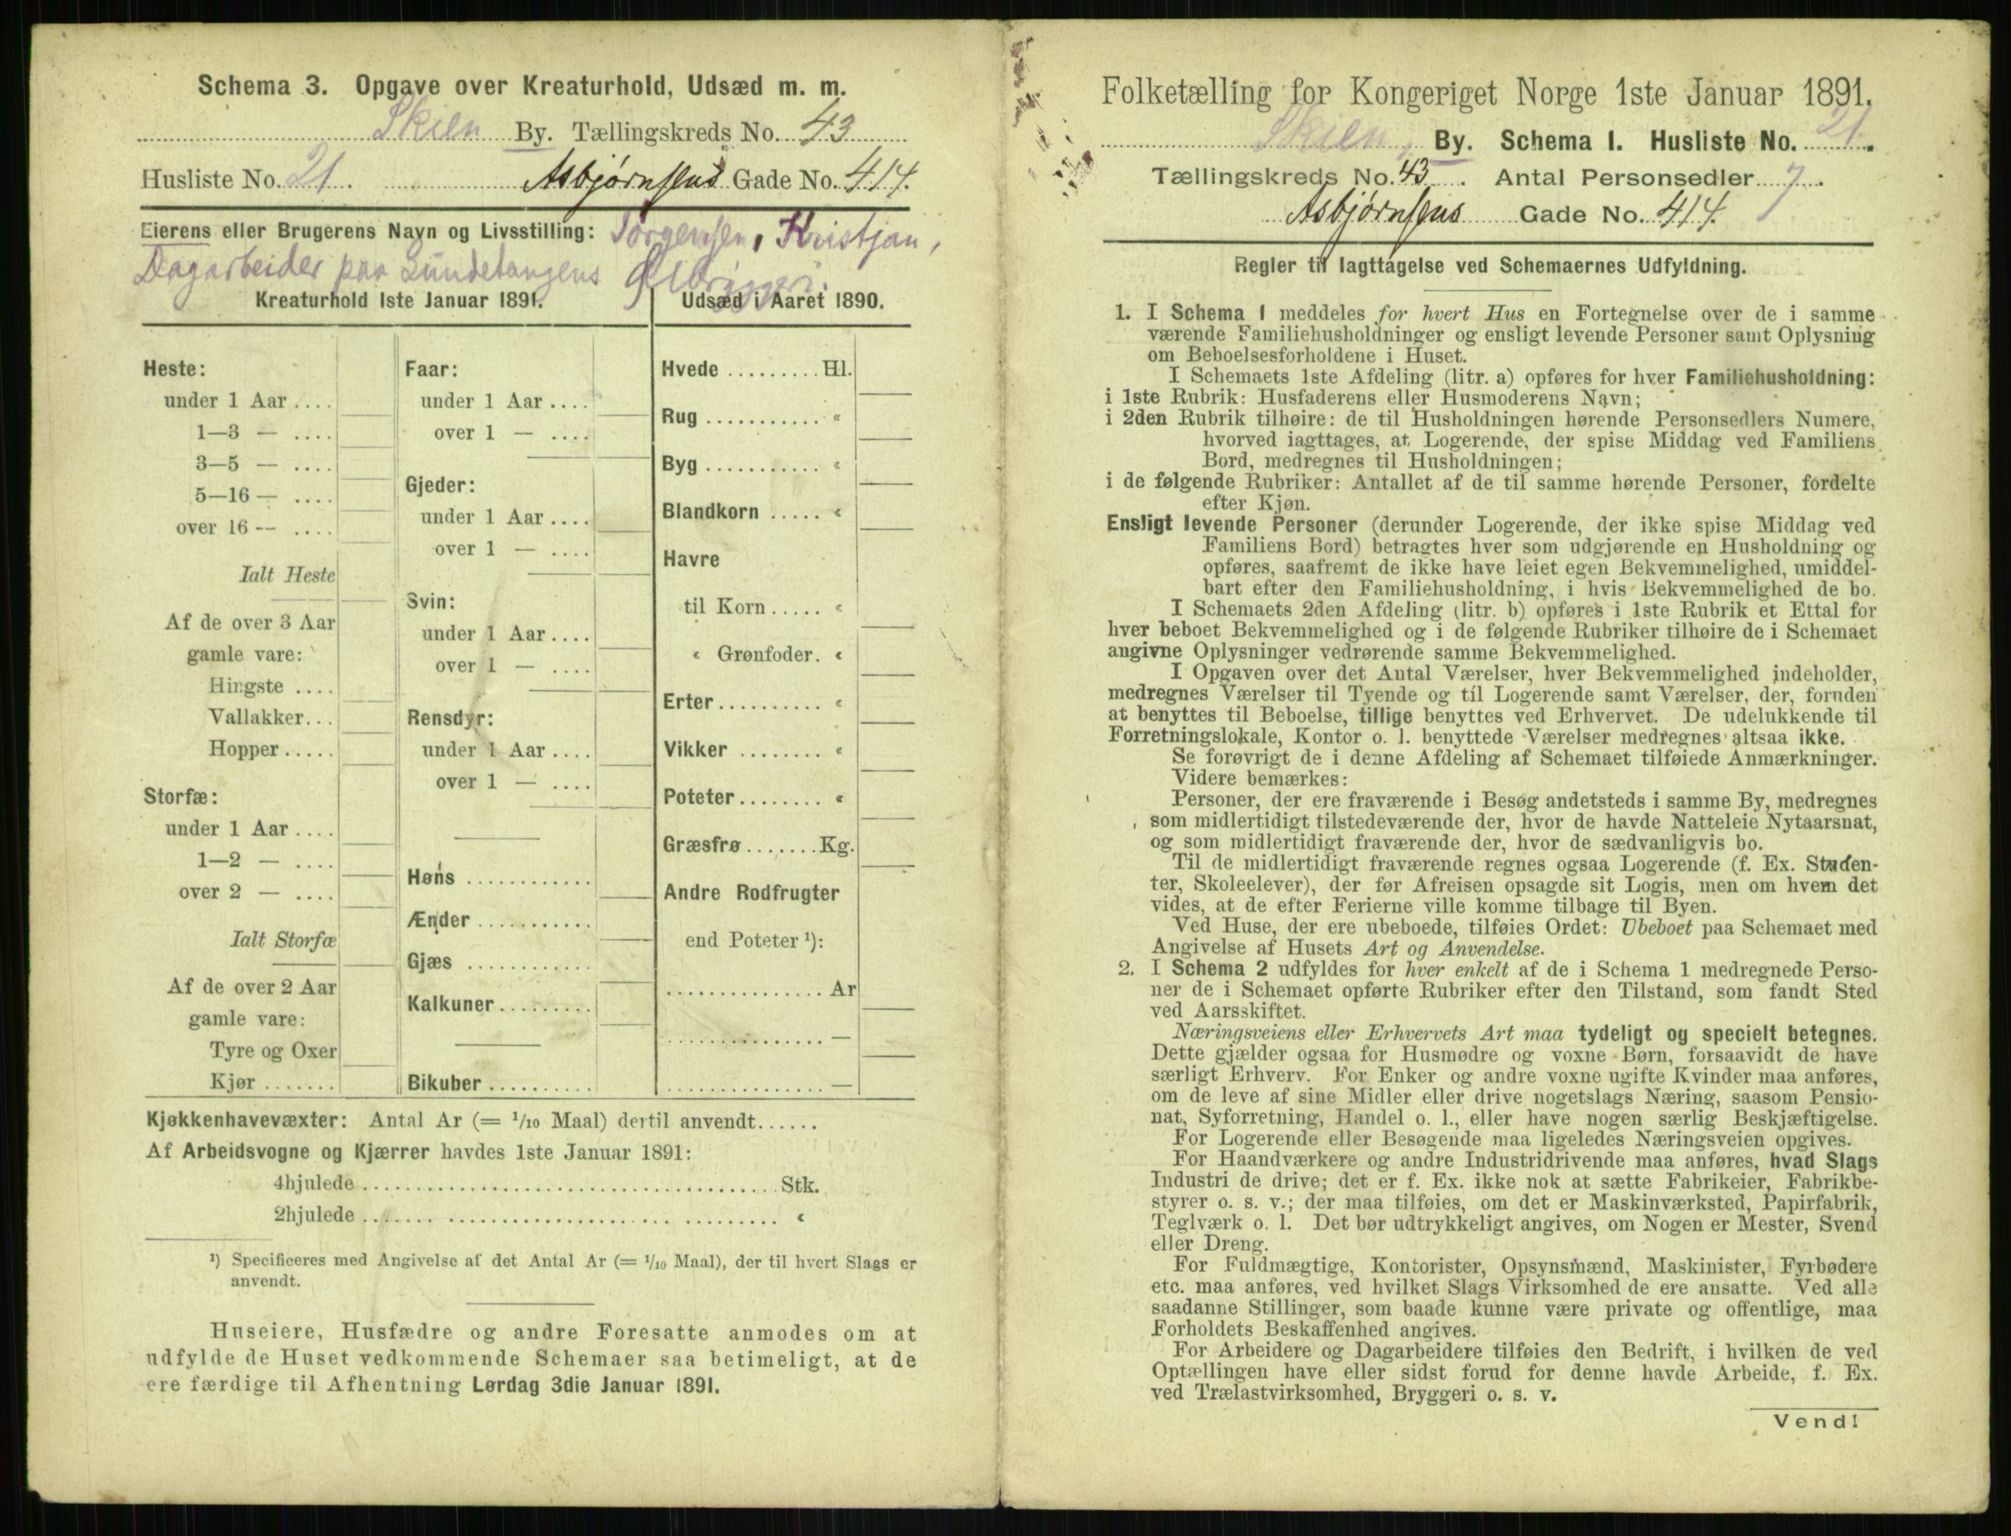 Schema 3. Opgave over Kreaturhold, Udsæd m. m.
Skien By. Tællingskreds No. 43
Husliste No. 21. Asbjørnsens Gade No. 414.
Eierens eller Brugerens Navn og Livsstilling: Jørgensen, Kristjan,
Dagarbeider paa Lundetangens Ølbryggeri.
Kreaturhold 1ste Januar 1891.
Heste:
under 1 Aar ....
1—3 — ....
3—5 — ....
5—16 — ....
over 16 -- ....
Ialt Heste
Af de over 3 Aar
gamle vare:
Hingste ....
Vallakker...
Hopper .....
Storfæ:
under 1 Aar ....
1—2 — ....
over 2 — ....
Ialt Storfæ
Af de over 2 Aar
gamle vare:
Tyre og Oxer
Kjør .......
Faar:
under 1 Aar ....
over 1 — ....
Gjeder:
under 1 Aar ....
over 1 — ....
Svin:
under 1 Aar ....
over 1 — ....
Rensdyr:
under 1 Aar ....
over 1 — ....
Høns ............
Ænder ...........
Gjæs ............
Kalkuner .........
Bikuber ..........
Udsæd i Aaret 1890.
Hvede ......... Hl.
Rug ........... «
Byg ........... «
Blandkorn ..... «
Havre
til Korn ..... «
« Grønfoder. «
Erter .......... «
Vikker ........ «
Poteter ........ «
Græsfrø ....... Kg.
Andre Rodfrugter
end Poteter ¹):
............... Ar
............... —
............... —
Kjøkkenhavevæxter: Antal Ar (= 1/10 Maal) dertil anvendt......
Af Arbeidsvogne og Kjærrer havdes 1ste Januar 1891:
4hjulede ........................................ Stk.
2hjulede ........................................ «
¹) Specificeres med Angivelse af det Antal Ar (= 1/10 Maal), der til hvert Slags er
anvendt.
Huseiere, Husfædre og andre Foresatte anmodes om at
udfylde de Huset vedkommende Schemaer saa betimeligt, at de
ere færdige til Afhentning Lørdag 3die Januar 1891.
Folketælling for Kongeriget Norge 1ste Januar 1891.
Skien, By. Schema I. Husliste No. 21.
Tællingskreds No. 43. Antal Personsedler 7.
Asbjørnsens Gade No. 414.
Regler til Iagttagelse ved Schemaernes Udfyldning.
1. I Schema I meddeles for hvert Hus en Fortegnelse over de i samme
værende Familiehusholdninger og ensligt levende Personer samt Oplysning
om Beboelsesforholdene i Huset.
I Schemaets 1ste Afdeling (litr. a) opføres for hver Familiehusholdning:
i 1ste Rubrik: Husfaderens eller Husmoderens Navn;
i 2den Rubrik tilhøire: de til Husholdningen hørende Personsedlers Numere,
hvorved iagttages, at Logerende, der spise Middag ved Familiens
Bord, medregnes til Husholdningen;
i de følgende Rubriker: Antallet af de til samme hørende Personer, fordelte
efter Kjøn.
Ensligt levende Personer (derunder Logerende, der ikke spise Middag ved
Familiens Bord) betragtes hver som udgjørende en Husholdning og
opføres, saafremt de ikke have leiet egen Bekvemmelighed, umiddel-
bart efter den Familiehusholdning, i hvis Bekvemmelighed de bo.
I Schemaets 2den Afdeling (litr. b) opføres i 1ste Rubrik et Ettal for
hver beboet Bekvemmelighed og i de følgende Rubriker tilhøire de i Schemaet
angivne Oplysninger vedrørende samme Bekvemmelighed.
I Opgaven over det Antal Værelser, hver Bekvemmelighed indeholder,
medregnes Værelser til Tyende og til Logerende samt Værelser, der, foruden
at benyttes til Beboelse, tillige benyttes ved Erhvervet. De udelukkende til
Forretningslokale, Kontor o. l. benyttede Værelser medregnes altsaa ikke.
Se forøvrigt de i denne Afdeling af Schemaet tilføiede Anmærkninger.
Videre bemærkes:
Personer, der ere fraværende i Besøg andetsteds i samme By, medregnes
som midlertidigt tilstedeværende der, hvor de havde Natteleie Nytaarsnat,
og som midlertidigt fraværende der, hvor de sædvanligvis bo.
Til de midlertidigt fraværende regnes ogsaa Logerende (f. Ex. Studen-
ter, Skoleelever), der før Afreisen opsagde sit Logis, men om hvem det
vides, at de efter Ferierne ville komme tilbage til Byen.
Ved Huse, der ere ubeboede, tilføies Ordet: Ubeboet paa Schemaet med
Angivelse af Husets Art og Anvendelse.
2. I Schema 2 udfyldes for hver enkelt af de i Schema 1 medregnede Perso-
ner de i Schemaet opførte Rubriker efter den Tilstand, som fandt Sted
ved Aarsskiftet.
Næringsveiens eller Erhvervets Art maa tydeligt og specielt betegnes.
Dette gjælder ogsaa for Husmødre og voxne Børn, forsaavidt de have
særligt Erhverv. For Enker og andre voxne ugifte Kvinder maa anføres,
om de leve af sine Midler eller drive nogetslags Næring, saasom Pensio-
nat, Syforretning, Handel o. l., eller have nogen særlig Beskjæftigelse.
For Logerende eller Besøgende maa ligeledes Næringsveien opgives.
For Haandværkere og andre Industridrivende maa anføres, hvad Slags
Industri de drive; det er f. Ex. ikke nok at sætte Fabrikeier, Fabrikbe-
styrer o. s. v.; der maa tilføies, om det er Maskinværksted, Papirfabrik,
Teglværk o. l. Det bør udtrykkeligt angives, om Nogen er Mester, Svend
eller Dreng.
For Fuldmægtige, Kontorister, Opsynsmænd, Maskinister, Fyrbødere
etc. maa anføres, ved hvilket Slags Virksomhed de ere ansatte. Ved alle
saadanne Stillinger, som baade kunne være private og offentlige, maa
Forholdets Beskaffenhed angives.
For Arbeidere og Dagarbeidere tilføies den Bedrift, i hvilken de ved
Optællingen have eller sidst forud for denne havde Arbeide, f. Ex.
ved Trælastvirksomhed, Bryggeri o. s. v.
Vend!